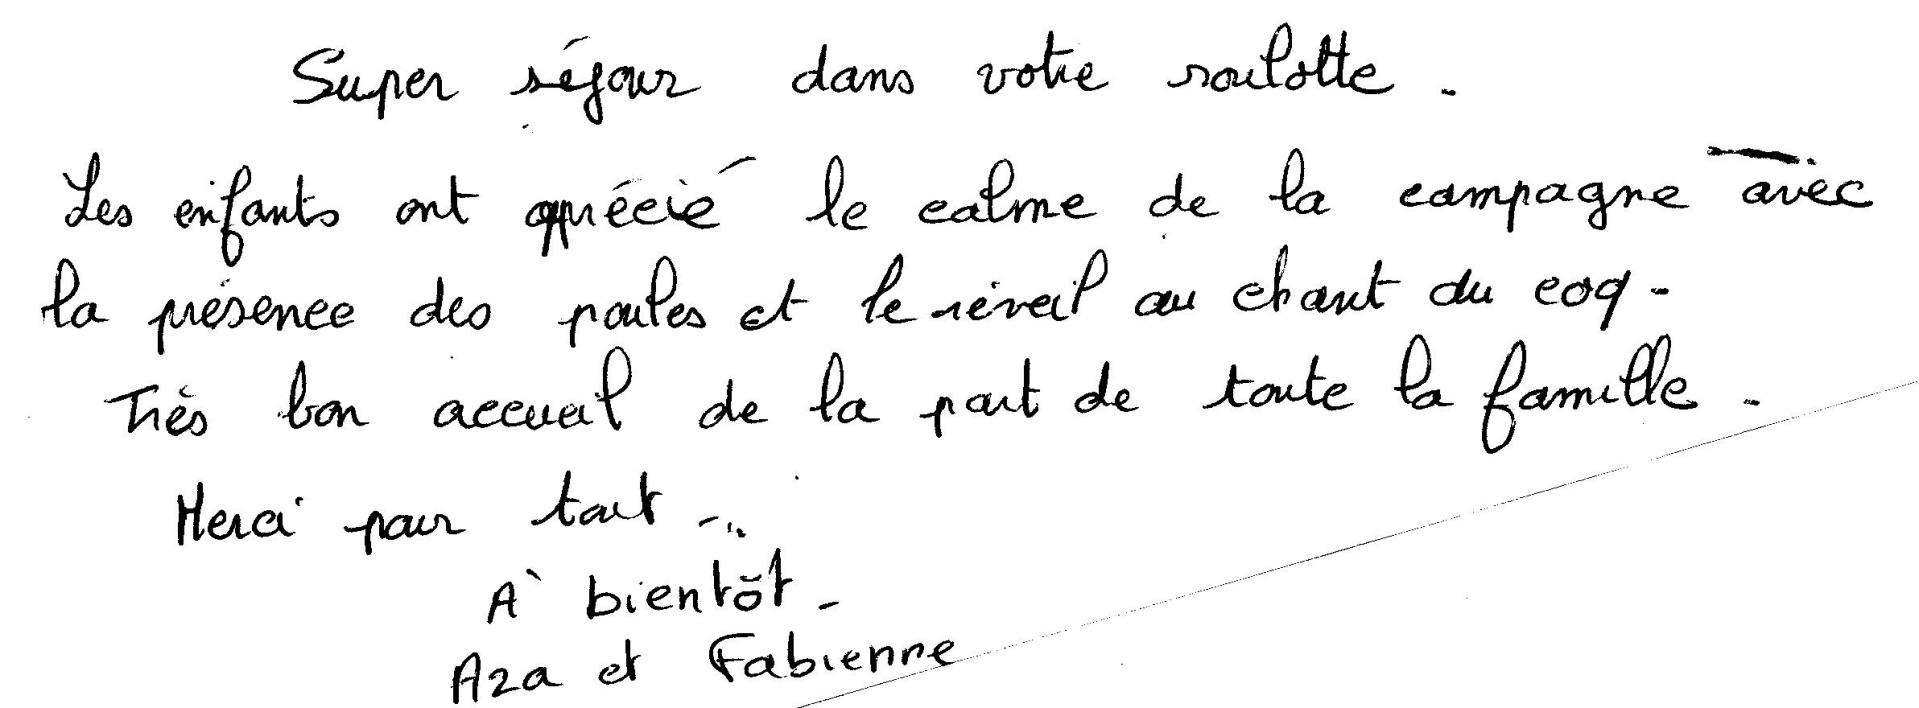 Super séjour dans votre roulotte.
Les enfants ont apprécié le calme de la campagne avec
la présence des poules et le réveil au chant du coq.
Très bon accueil de la part de toute la famille.
Merci pour tout...
A bientôt.
Aza et Fabienne